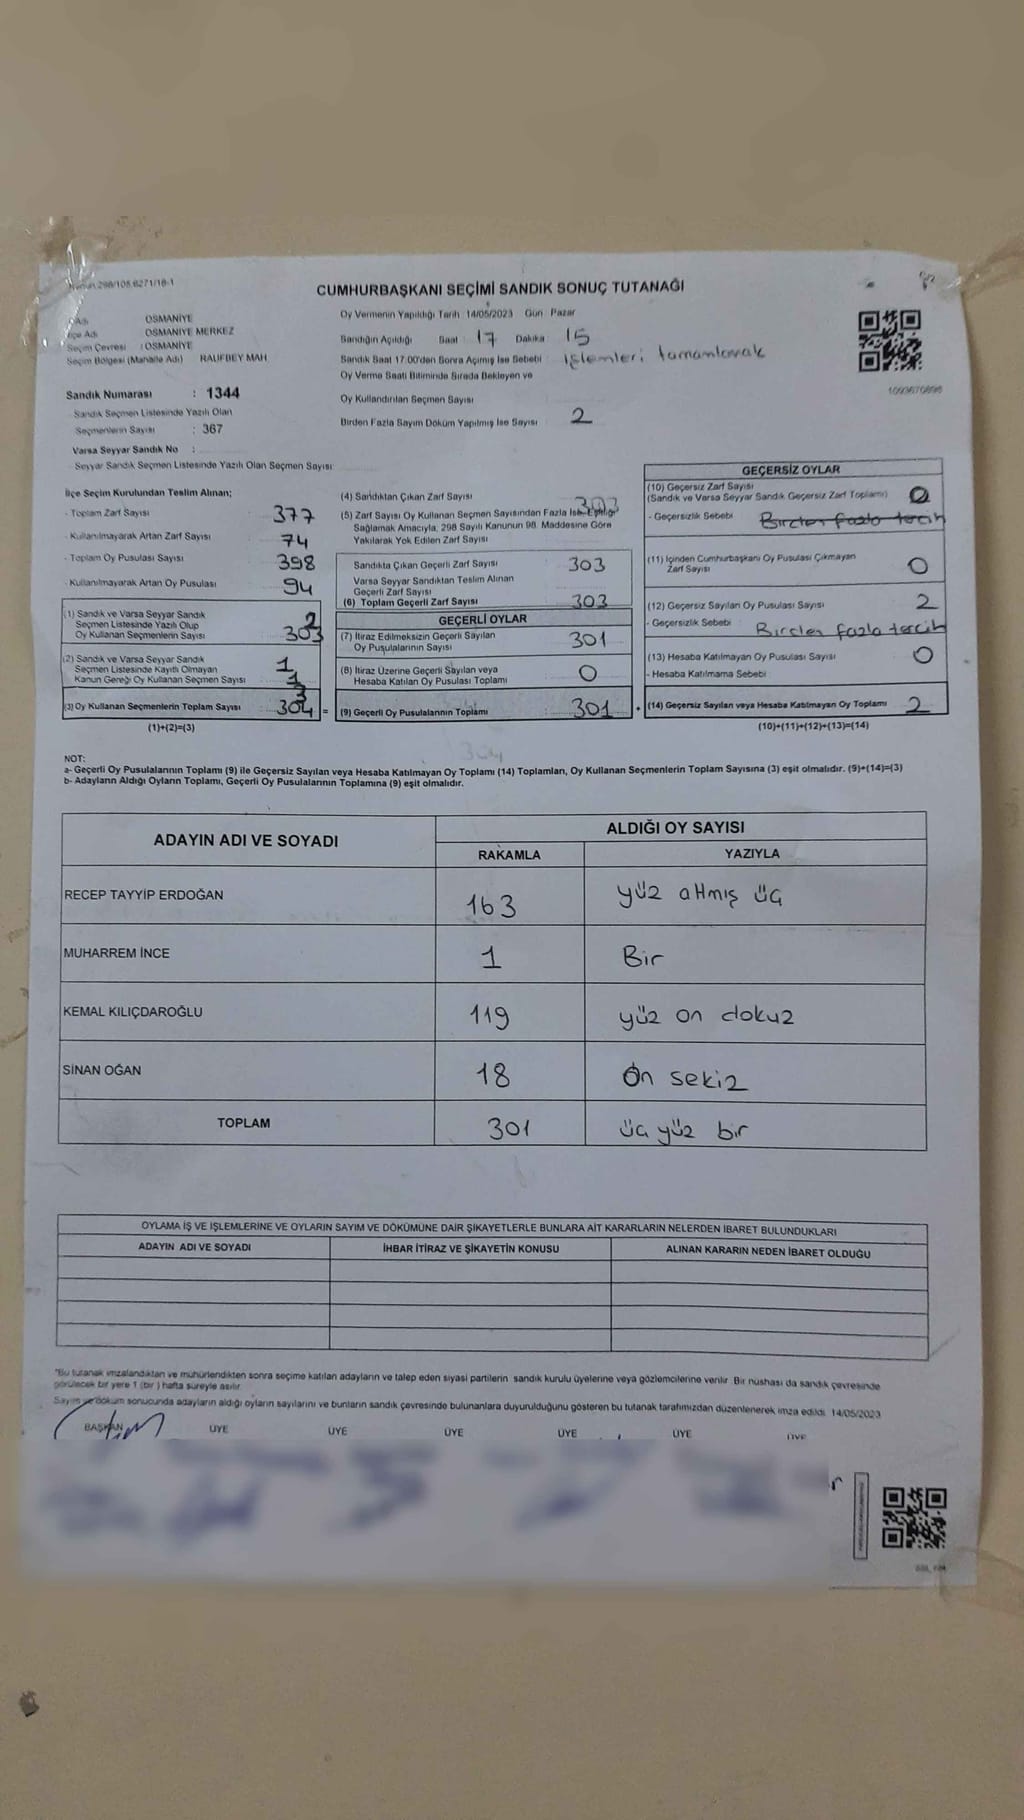 298/105.6271/18-1
CUMHURBAŞKANI SEÇİMİ SANDIK SONUÇ TUTANAĞI
OSMANİYE
İlçe Adı OSMANİYE MERKEZ
Seçim Çevresi : OSMANİYE
Seçim Bölgesi (Mahalle Adı) RAUFBEY MAH
Sandık Numarası : 1344
Sandık Seçmen Listesinde Yazılı Olan
Seçmenlerin Sayısı : 367
Varsa Seyyar Sandık No :
Seyyar Sandık Seçmen Listesinde Yazılı Olan Seçmen Sayısı
Oy Vermenin Yapıldığı Tarih 14/05/2023 Gün Pazar
Sandığın Açıldığı Saat : 17 Dakika 15
Sandık Saat 17.00'den Sonra Açılmış İse Sebebi işlemleri tamamlamak
Oy Verme Saati Bitiminde Sırada Bekleyen ve
Oy Kullandırılan Seçmen Sayısı
Birden Fazla Sayım Döküm Yapılmış İse Sayısı 2
1093670898
İlçe Seçim Kurulundan Teslim Alınan;
- Toplam Zarf Sayısı 377
- Kullanılmayarak Artan Zarf Sayısı 74
- Toplam Oy Pusulası Sayısı 398
- Kullanılmayarak Artan Oy Pusulası 94
(1) Sandık ve Varsa Seyyar Sandık
Seçmen Listesinde Yazılı Olup
Oy Kullanan Seçmenlerin Sayısı 303 2
(2) Sandık ve Varsa Seyyar Sandık
Seçmen Listesinde Kayıtlı Olmayan
Kanun Gereği Oy Kullanan Seçmen Sayısı 1 1
(3) Oy Kullanan Seçmenlerin Toplam Sayısı 304 3 =
(1)+(2)=(3)
(4) Sandıktan Çıkan Zarf Sayısı 303
(5) Zarf Sayısı Oy Kullanan Seçmen Sayısından Fazla İse Eşitliği
Sağlamak Amacıyla, 298 Sayılı Kanunun 98. Maddesine Göre
Yakılarak Yok Edilen Zarf Sayısı
Sandıkta Çıkan Geçerli Zarf Sayısı 303
Varsa Seyyar Sandıktan Teslim Alınan
Geçerli Zarf Sayısı
(6) Toplam Geçerli Zarf Sayısı 303
GEÇERLİ OYLAR
(7) İtiraz Edilmeksizin Geçerli Sayılan
Oy Pusulalarının Sayısı 301
(8) İtiraz Üzerine Geçerli Sayılan veya
Hesaba Katılan Oy Pusulası Toplamı 0
(9) Geçerli Oy Pusulalarının Toplamı 301 +
GEÇERSİZ OYLAR
(10) Geçersiz Zarf Sayısı
(Sandık ve Varsa Seyyar Sandık Geçersiz Zarf Toplamı) 0
- Geçersizlik Sebebi Birden fazla tercih
(11) İçinden Cumhurbaşkanı Oy Pusulası Çıkmayan
Zarf Sayısı 0
(12) Geçersiz Sayılan Oy Pusulası Sayısı 2
- Geçersizlik Sebebi Birden fazla tercih
(13) Hesaba Katılmayan Oy Pusulası Sayısı 0
- Hesaba Katılmama Sebebi
(14) Geçersiz Sayılan veya Hesaba Katılmayan Oy Toplamı 2
(10)+(11)+(12)+(13)=(14)
NOT:
a- Geçerli Oy Pusulalarının Toplamı (9) ile Geçersiz Sayılan veya Hesaba Katılmayan Oy Toplamı (14) Toplamları, Oy Kullanan Seçmenlerin Toplam Sayısına (3) eşit olmalıdır. (9)+(14)=(3)
b- Adayların Aldığı Oyların Toplamı, Geçerli Oy Pusulalarının Toplamına (9) eşit olmalıdır.
ADAYIN ADI VE SOYADI
ALDIĞI OY SAYISI
RAKAMLA YAZIYLA
RECEP TAYYİP ERDOĞAN 163 yüz altmış üç
MUHARREM İNCE 1 Bir
KEMAL KILIÇDAROĞLU 119 yüz on dokuz
SİNAN OĞAN 18 On sekiz
TOPLAM 301 üç yüz bir
OYLAMA İŞ VE İŞLEMLERİNE VE OYLARIN SAYIM VE DÖKÜMÜNE DAİR ŞİKAYETLERLE BUNLARA AİT KARARLARIN NELERDEN İBARET BULUNDUKLARI
ADAYIN ADI VE SOYADI İHBAR İTİRAZ VE ŞİKAYETİN KONUSU ALINAN KARARIN NEDEN İBARET OLDUĞU
"Bu tutanak imzalandıktan ve mühürlendikten sonra seçime katılan adayların ve talep eden siyasi partilerin sandık kurulu üyelerine veya gözlemcilerine verilir. Bir nüshası da sandık çevresinde
görülecek bir yere 1 (bir ) hafta süreyle asılır.
Sayım ve döküm sonucunda adayların aldığı oyların sayılarını ve bunların sandık çevresinde bulunanlara duyurulduğunu gösteren bu tutanak tarafımızdan düzenlenerek imza edildi. 14/05/2023
BAŞKAN ÜYE ÜYE ÜYE ÜYE ÜYE ÜYE